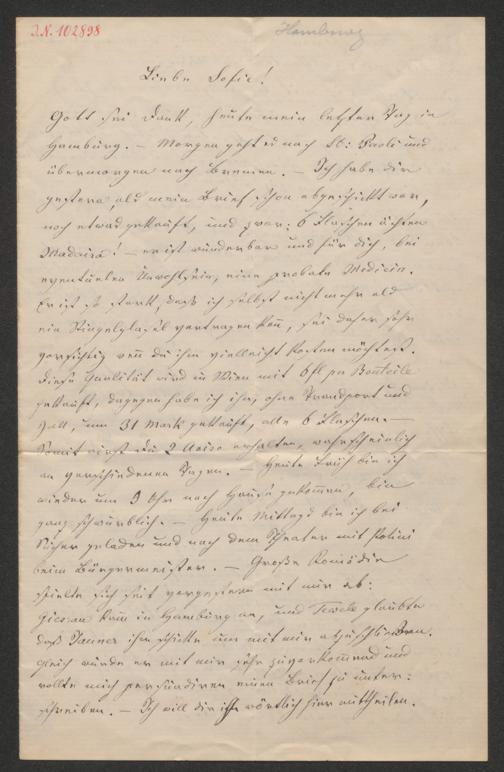 I.N. 102898
Hamburg
Liebe Sofie!
Gott sei Dank, heute mein letzter Tag in
Hamburg. – Morgen geht es nach St: Pauli und
übermorgen nach Bremen. – Ich habe dir
gestern, als mein Brief schon abgeschickt war,
noch etwas gekauft, und zwar: 6 Flaschen ächten
Madaira! – er ist wunderbar und für dich, bei
eventuelen Unwohlsein, eine probate Medicin.
Er ist so stark, daß ich selbst nicht mehr als
ein Stingelglasel vertragen kañ, sei daher sehr
vorsichtig weñ du ihn vielleicht kosten möchtest.
Diese Qualität wird in Wien mit 6 fl pr Bouteile
gekauft, dagegen habe ich ihn, ohne Transport und
Zoll, um 31 Mark gekauft, alle 6 Flaschen. –
Somit wirst du 2 Aviso erhalten, wahrscheinlich
an verschiedenen Tagen. – Heute Früh bin ich
wieder um 3 Uhr nach Hause gekom̄en, bin
ganz schwürblich. – Heute Mittags bin ich bei
geladen und nach dem Theater mit
beim Bürgermeister. – Große Komödie
spielte sich seit vorgestern mit mir ab:
kam in Hamburg an, und Tewele glaubte
daß Jauner ihn schickte um mit mir abzuschließen.
Gleich wurde er mit mir sehr zuvorkom̄end und
wollte mich persuadiren einen Brief zu unter:
schreiben. – Ich will dir ihn wörtlich hier mittheilen.